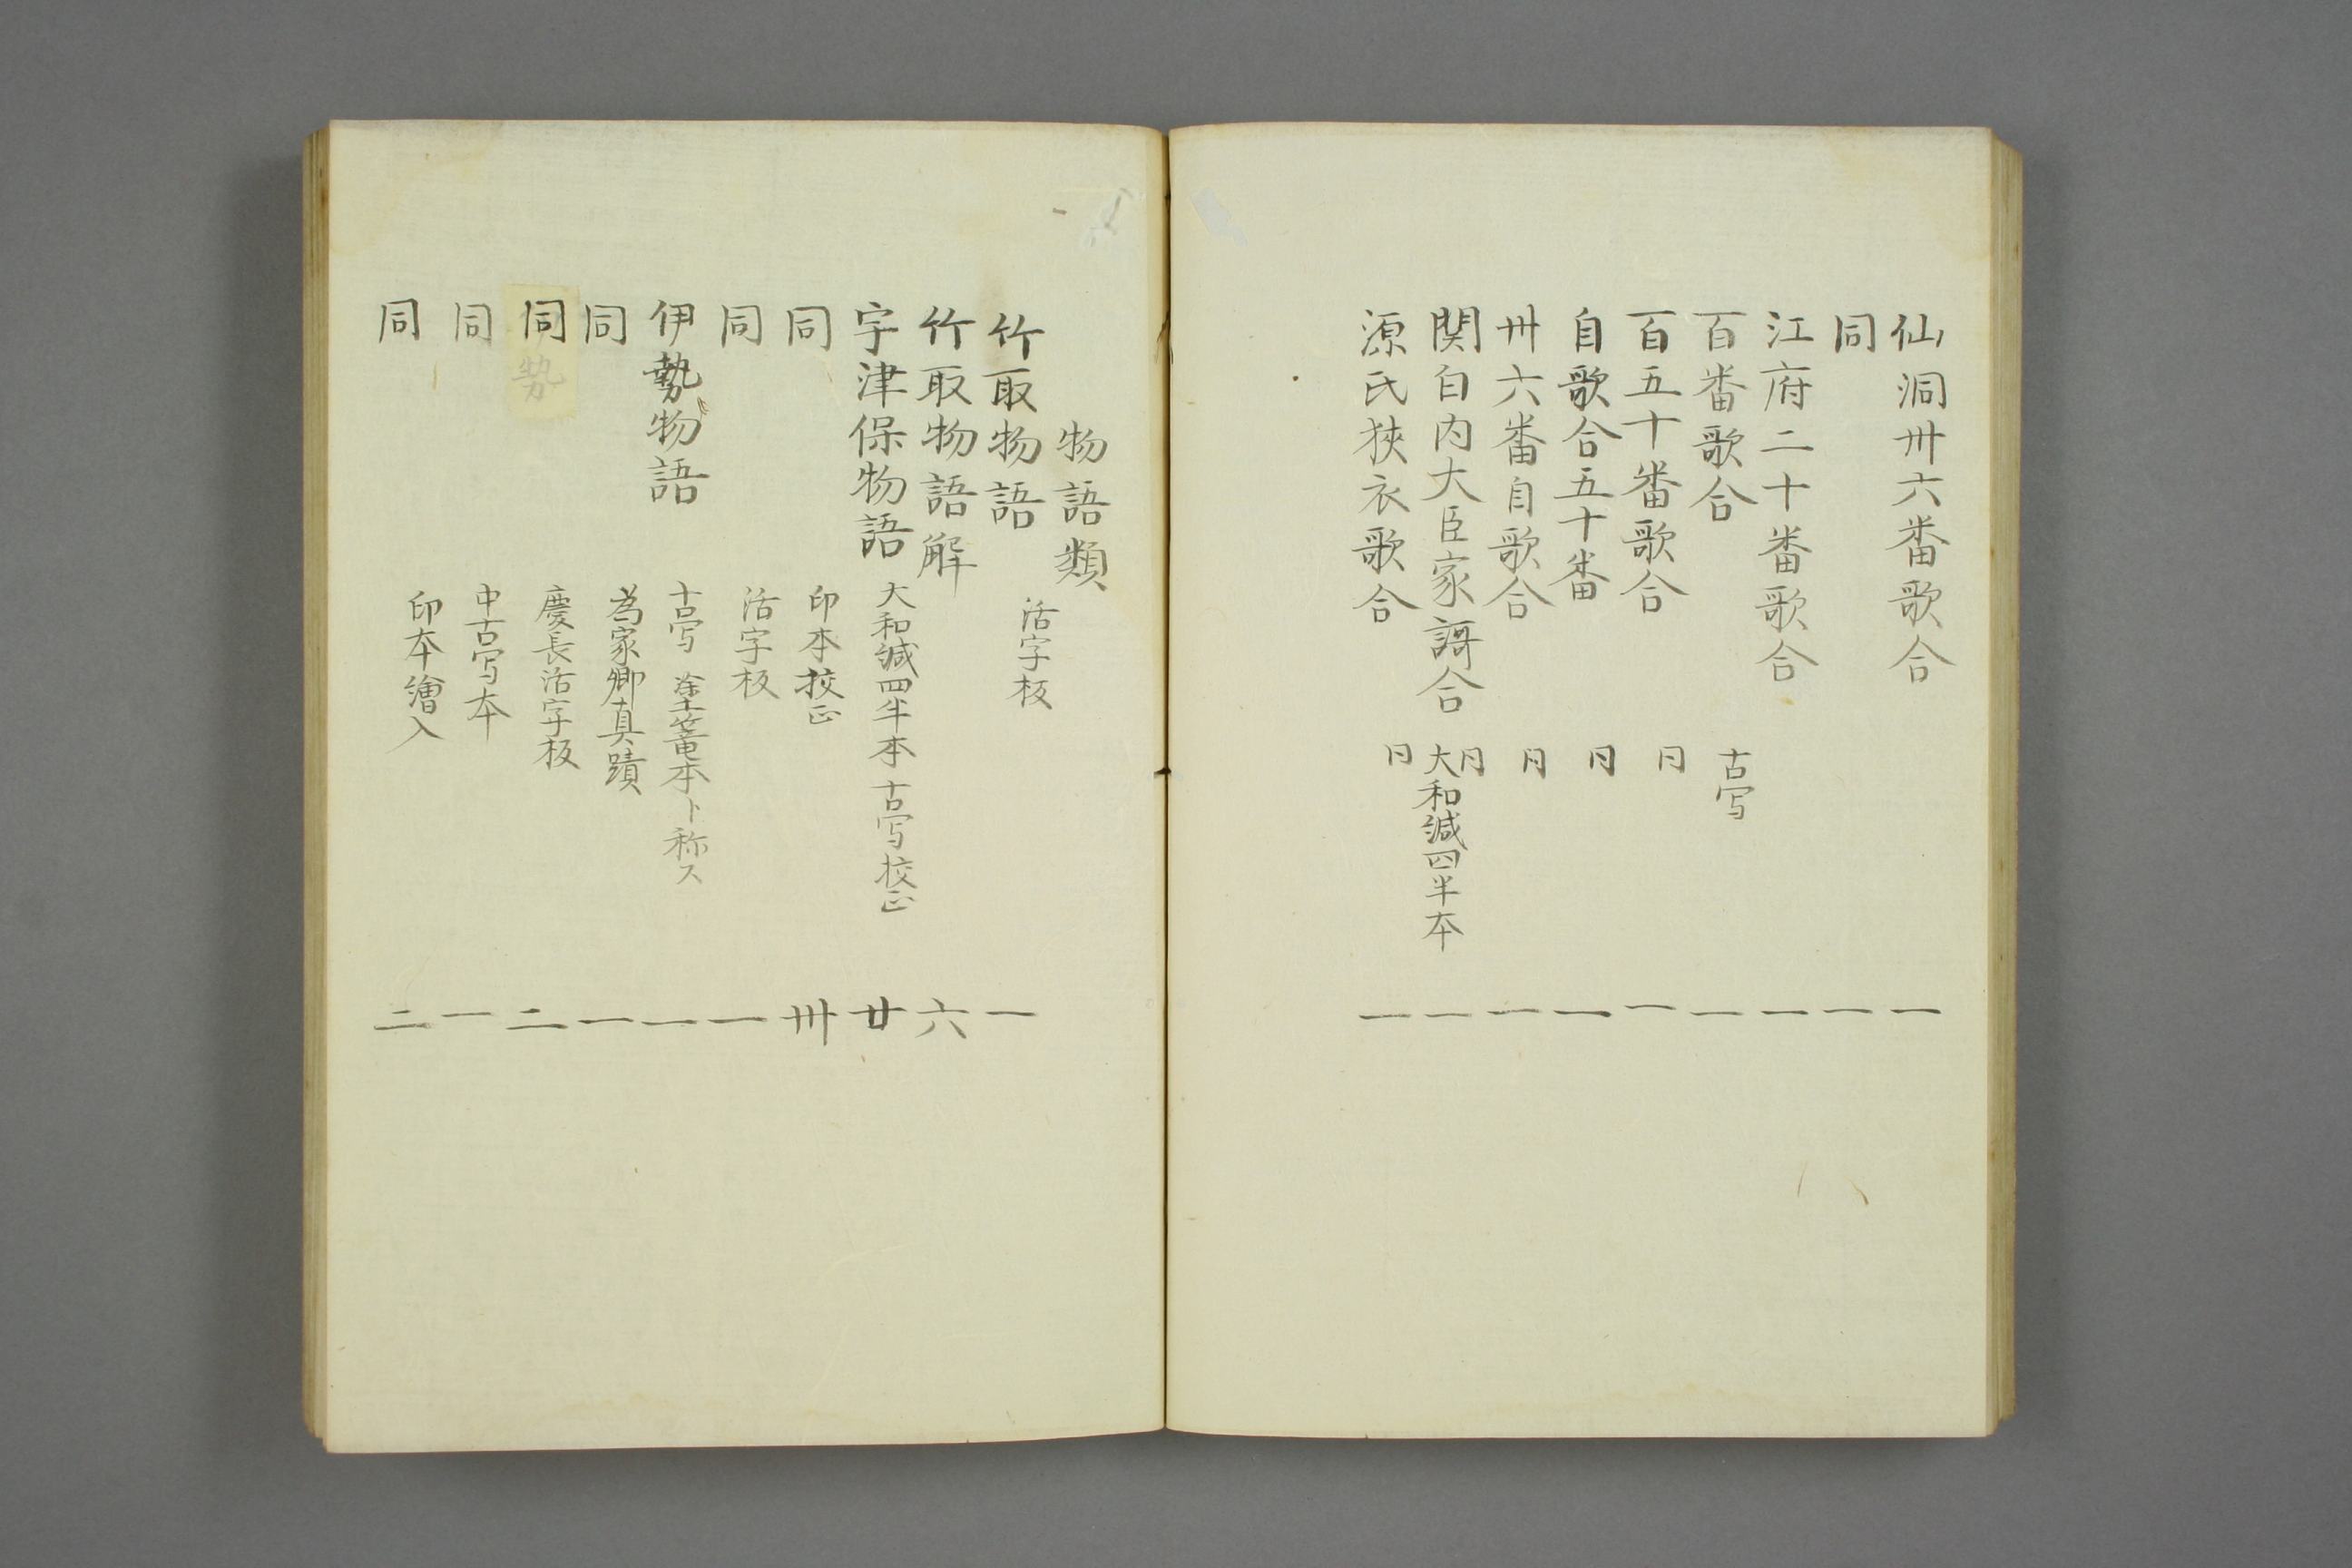 仙洞卅六番歌合 一
同 一
江府二十番歌合 一
百番歌合 古写 一
百五十番歌合 同 一
自歌合五十番 同 一
卅六番自歌合 同 一
関白内大臣家謌合 同 大和綴四半本 一
源氏狭衣歌合 同 一
物語類
竹取物語 活字板 一
竹取物語解 六
宇津保物語 大和綴四半本 古写校正 廿
同 印本校正 卅
同 活字板 一
伊勢物語 古写 塗篭本ト称ス 一
同 為家卿真蹟 一
同 慶長活字板 二
同 中古写本 一
同 印本繪入 二